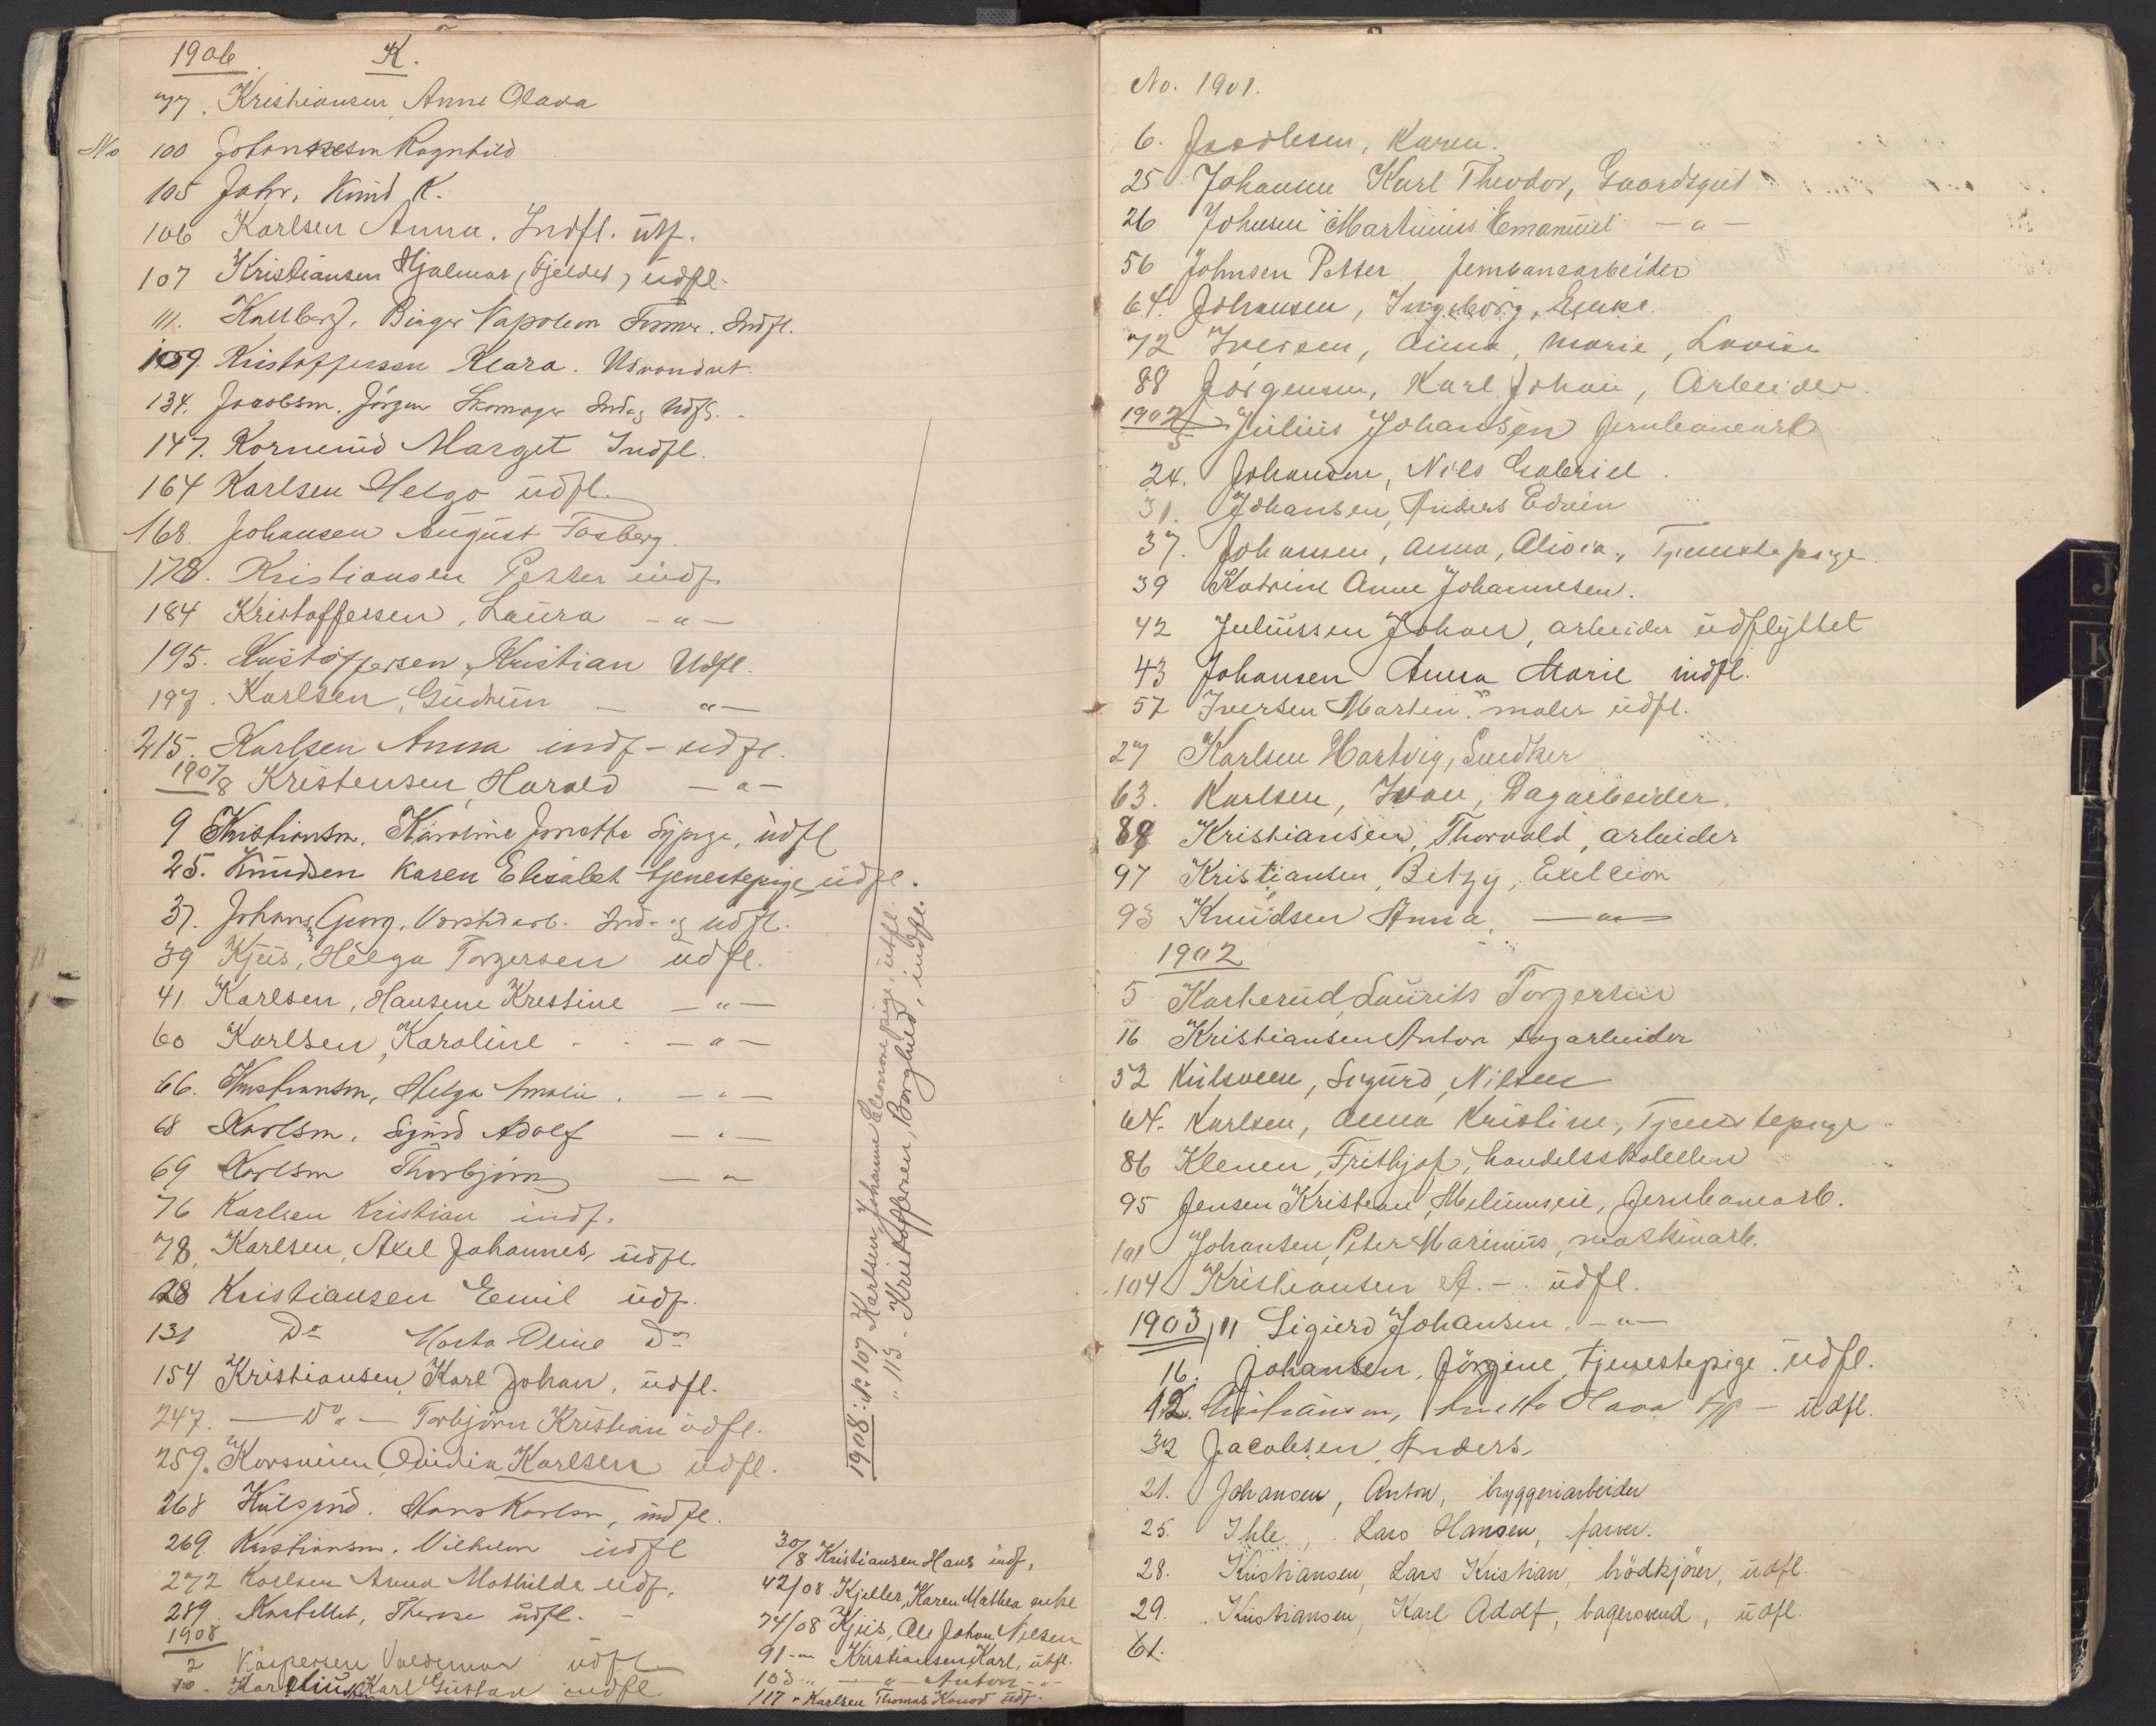 1906. K.
77. Kristiansen, Anne Olava
No 100 Johannesen Ragnhild
105 Jahr, Knud K.
106 Karlsen Anna. Indfl. utf.
107 Kristiansen Hjalmar, (Fjeldet) udfl.
111. Kullberg, Birger Napoleon Indfl.
109. Kristoffersen Klara. Udvandret.
134. Jacobsen, Jörgen Skomager Ind og Udfl.
147. Kornerud Marget Indfl.
164 Karlsen Helga udfl.
168. Johansen August Fosberg.
178. Kristiansen Petter indf.
184 Kristoffersen, Laura - " -
195. Kristoffersen, Kristian Udfl.
197. Karlsen, Gudrun - " -
215. Karlsen Anna indf - udfl.
1907/8 Kristensen, Harald - " -
9 Kristiansen, Karoline Jonetta Sypige, udfl
25. Knudsen Karen Elisabet tjenestepige udfl.
37. Johans. Georg, Verkstedarb. Ind- og udfl.
39 Kjus, Helga Torgersen udfl.
41 Karlsen, Hansine Krestine - " -
60 Karlsen, Karoline - " -
66. Kristiansen, Helga Amalie. - " -
68 Karlsen, Sigurd Adolf - " -
69 Karlsen Thorbjörn - " -
76 Karlsen Kristian indf.
78. Karlsen, Axel Johannes, udfl.
28 Kristiansen Emil udf.
131 Do Marta Oline Do
154 Kristiansen, Karl Johan, udfl.
247. - Do - Torbjörn Kristian udfl.
259. Korsveien, Ovidia Karlsen udfl.
268 Hans Karlsen, indfl.
269. Kristiansen. Vilhelm udfl
272 Karlsen Anna Mathilde udf.
289. Kastellet, Therese udfl. -
1908
2 Kaspersen Valdemar udfl
10. Karl Gustav indfl.
30/8 Kristiansen Hans indf.
42/08. Kjeller, Karen Mathea enke
74/08 Kjus, Ole Johan Nilsen
91 - " Kristiansen Karl, utfl.
103 " - " - Anton - " -
117 " Karlsen Thomas Konod udf.
1908: No 107 Karlsen, Johanne Elenore pige, utfl.
" 113 - Kristoffersen, Borghild, indfl.
No. 1901.
6. Jacobsen, Karen.
25 Johansen Karl Theodor, Gaardsgut
26 Johnsen Martinius Emanuel - " -
56 Johnsen Petter Jernbanearbeider
64. Johansen, Ingeborg, Enke
72 Iversen, Anna, Marie, Lovise
88 Jörgensen, Karl Johan, Arbeider
1902/5 Julius Johansen Jernbanearb
24. Johansen, Nils Gabriel.
31. Johansen, Anders Edvin
37. Johansen, Anna, Alvida, Tjenestepige
39 Katrine Anne Johannesen.
42 Juliussen Johan, arbeider udflyttet
43 Johansen Anna Marie indfl.
57 Iversen Martin. maler udfl.
27 Karlsen Hartvig, Snedker
63. Karlsen, Ivar, Dagarbeider.
88 Kristiansen, Thorvald, arbeider
97 Kristiansen, Betzy, Excelcion
93 Knudsen Anna, - " -
1902
5 Karterud, Laurits Torgersen
16 Kristiansen Anton Sagarbeider
52 Kulsveen, Sigurd, Nilsen
64. Karlsen, Anna Kristine, Tjenestepige
86 Klenen, Frithjof, handelsskoleelev
95 Jensen Kristian, Jernbanearb.
101 Johansen, Peter Marinius, maskinarb.
104 Kristiansen A. - . udfl.
1903/11 Sigurd Johansen. - " -
16. Johansen, Jörgine, tjenestepige. udfl.
12. Kristiansen, Anette Olava - udfl.
32 Jacobsen, Anders,
21. Johansen, Anton, bryggeriarbeider
25. Ihle, Lars Hansen, farver.
28. Kristiansen, Lars Kristian, brödkjörer, udfl.
29. Kristiansen, Karl Adolf, bagersvend, udfl.
61.
J
K